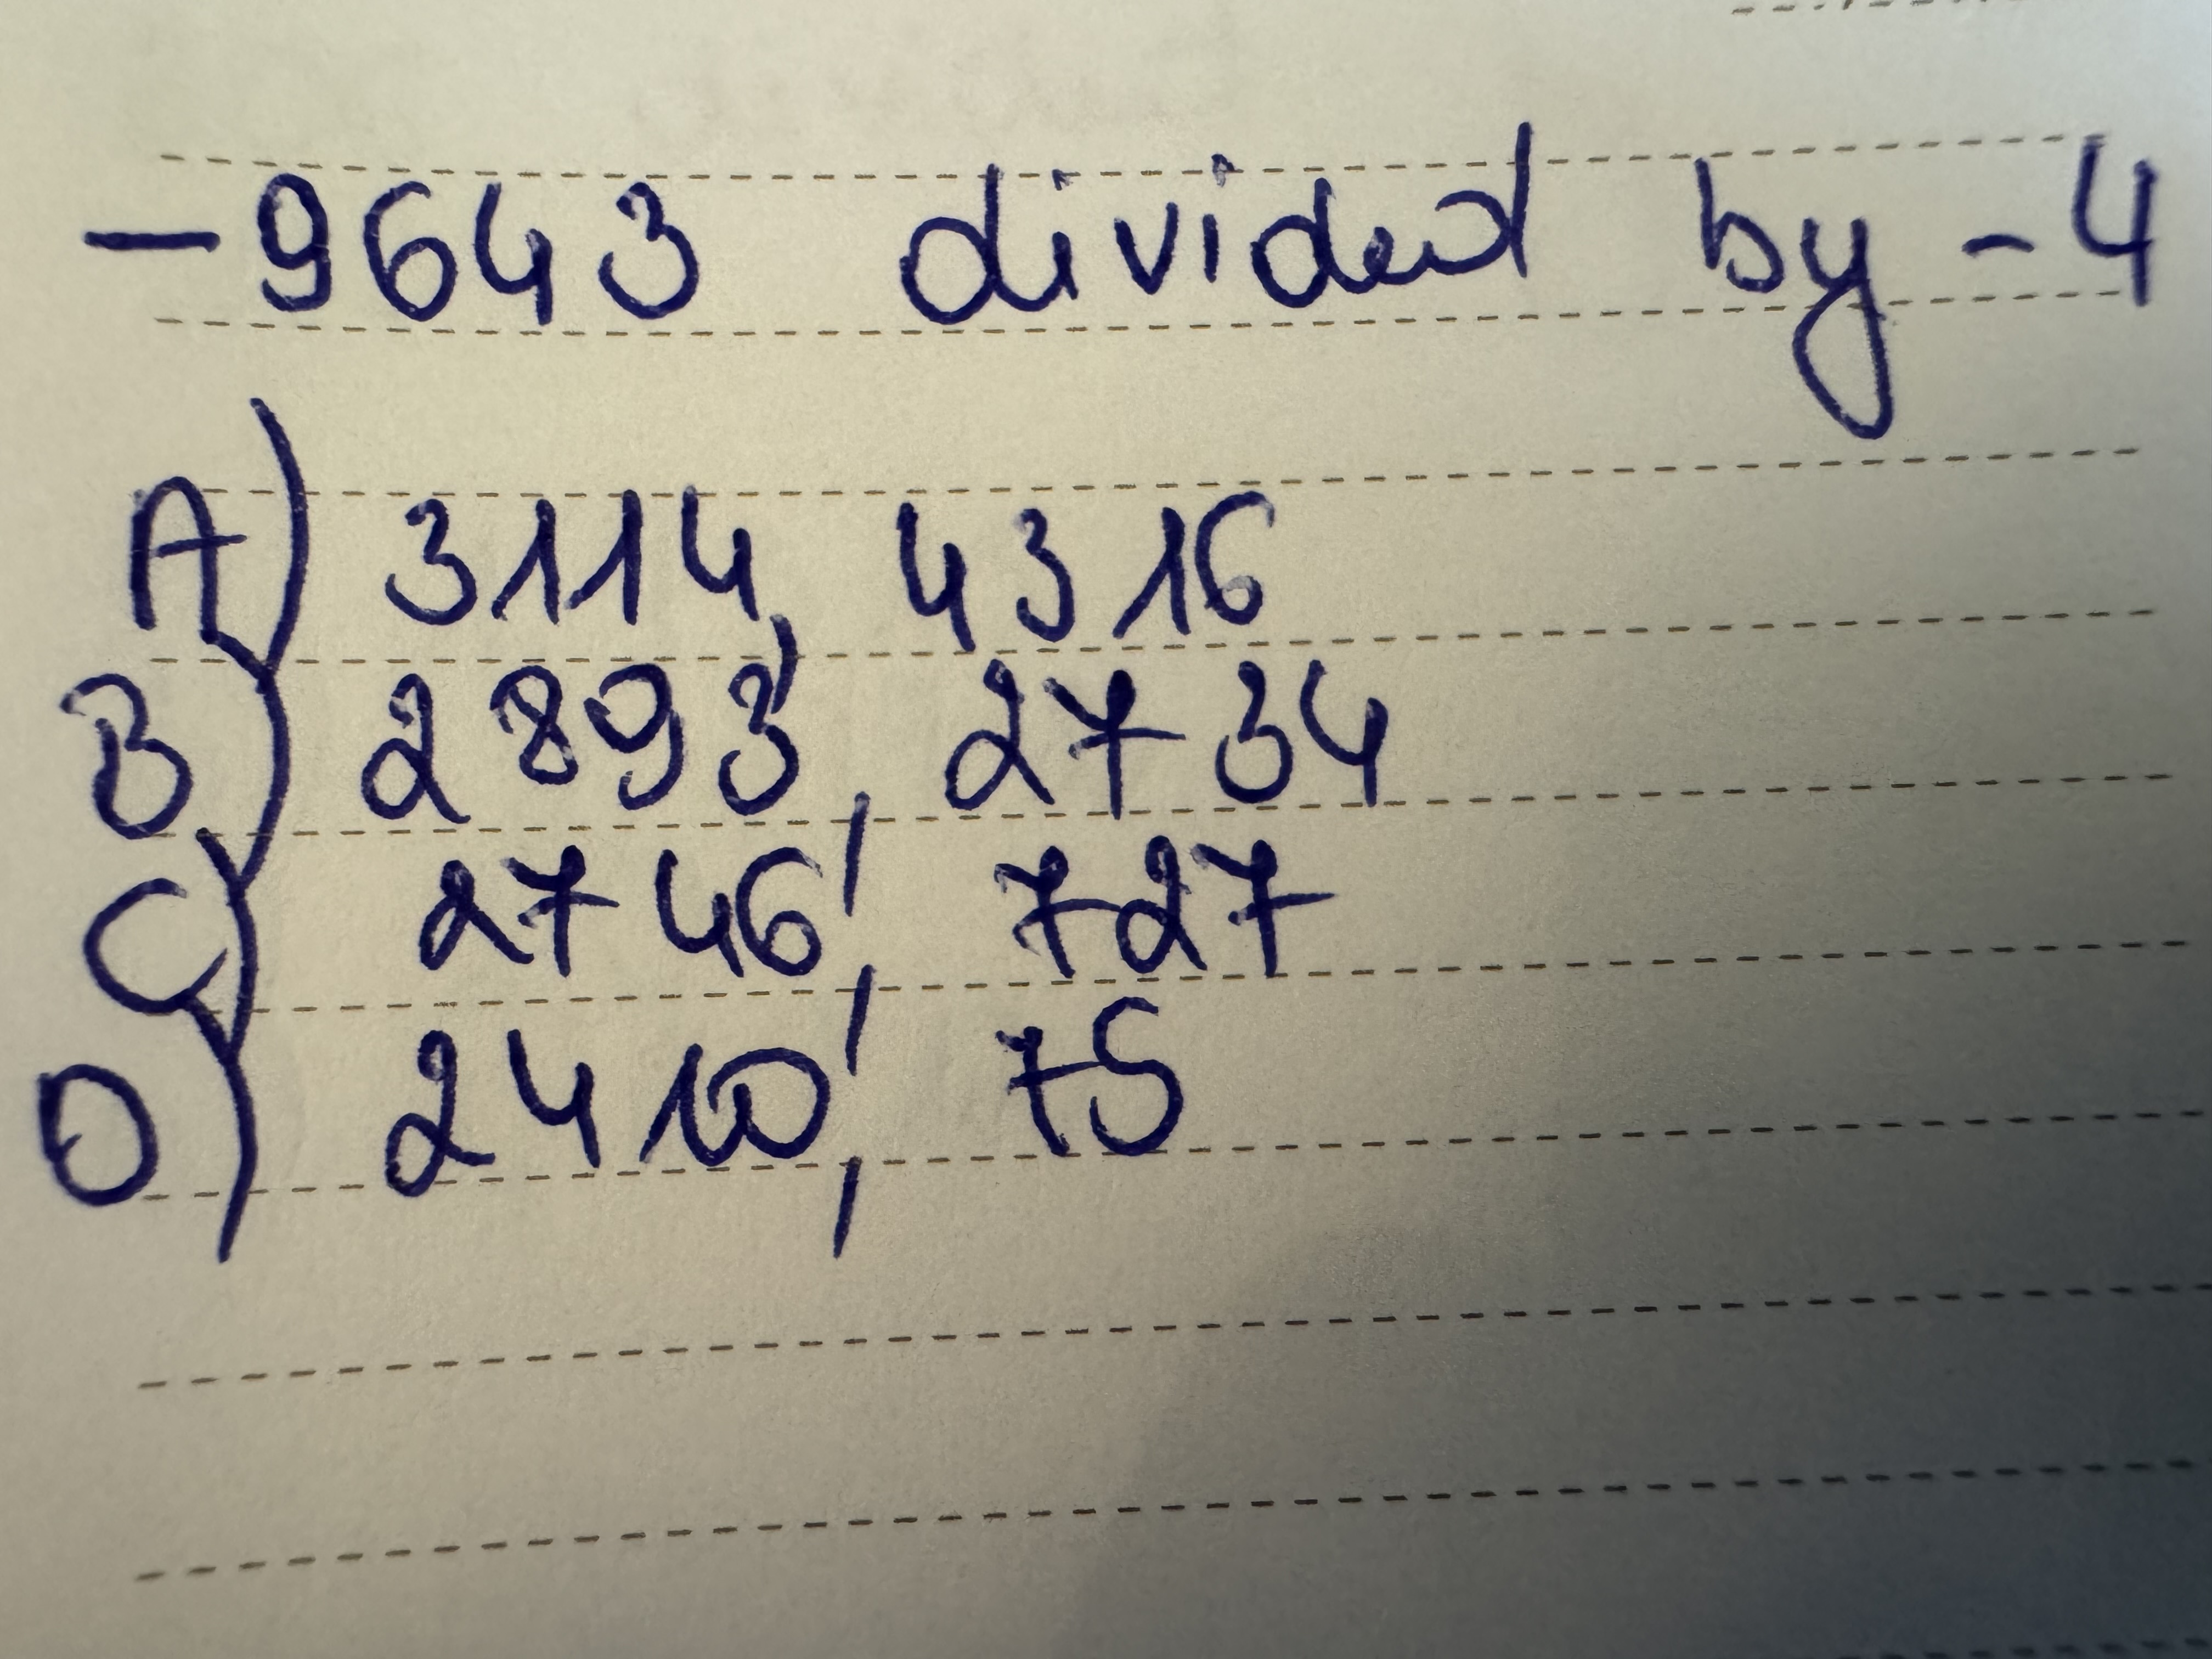 -9643 divided by -4
A) 3114, 4316
B) 2893, 2734
C) 2746, 727
D) 2410, 75